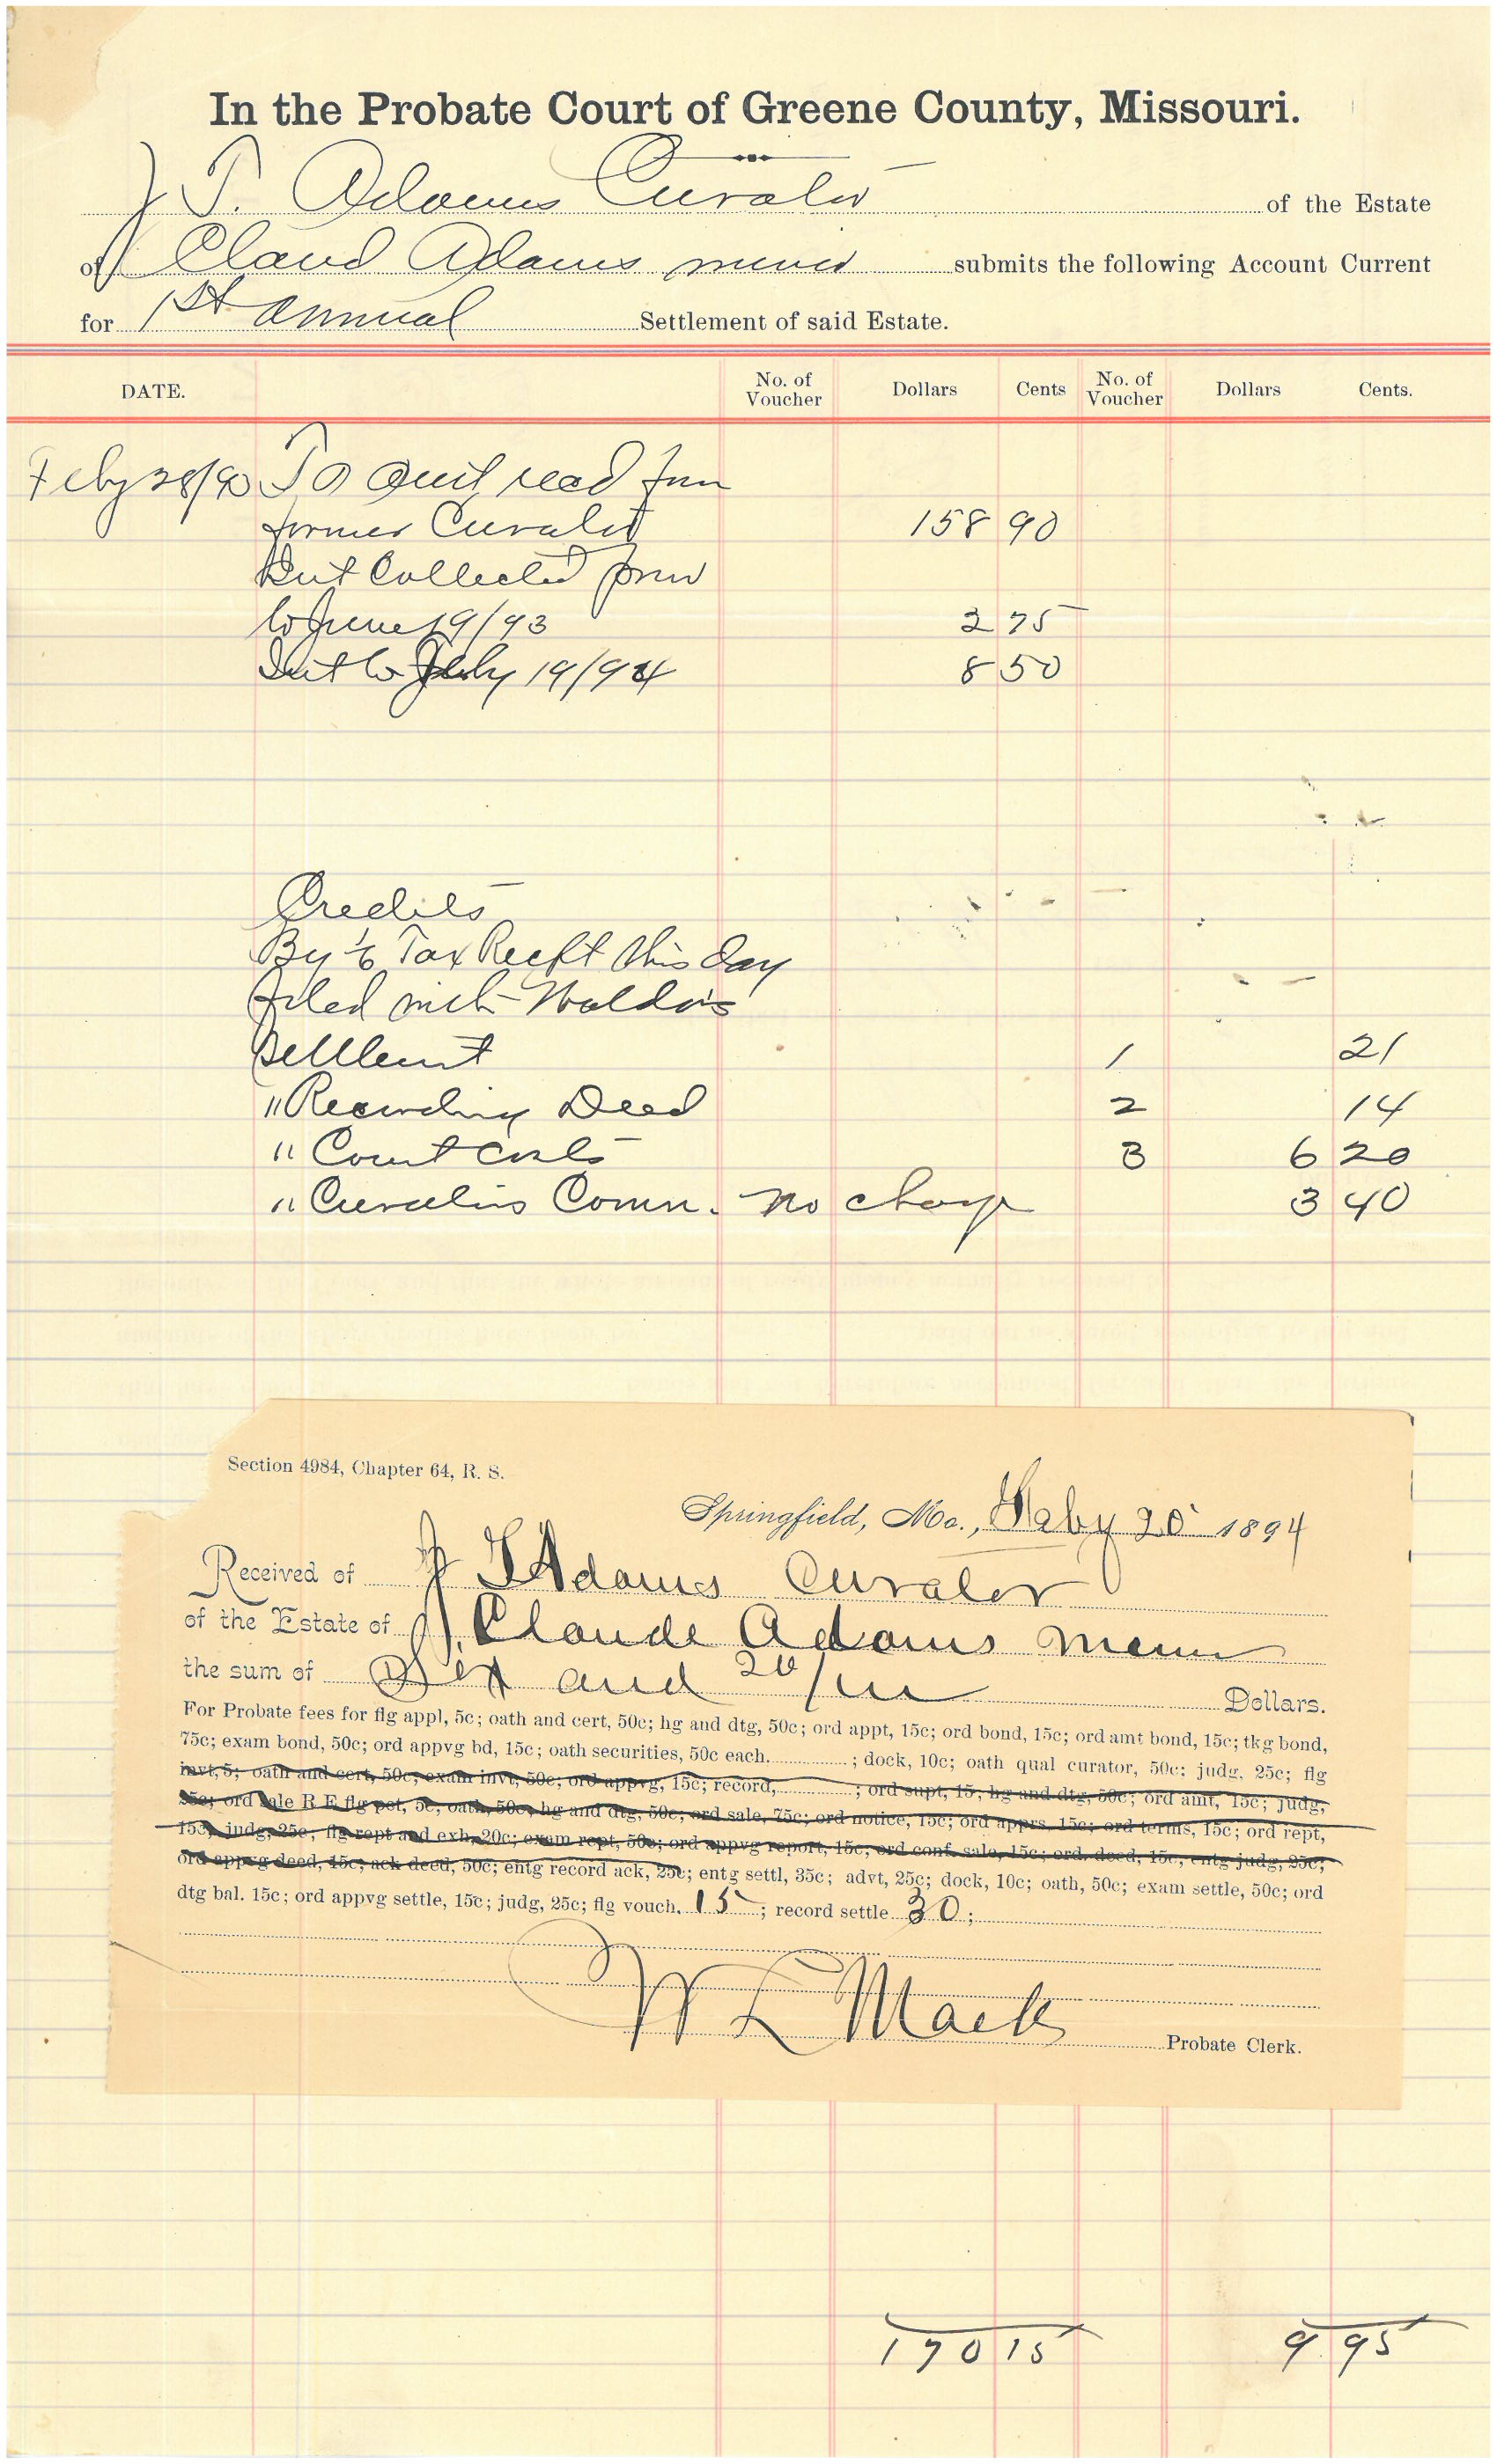 In the Probate Court of Greene County, Missouri.
J. T. Adams Curator of the Estate
of J Claud Adams minor submits the following Account Current
for 1st annual Settlement of said Estate.
DATE. No. of Voucher Dollars Cents No. of Voucher Dollars Cents.
Feby 28/93 To amt recd from
former Curator 158 90
Rent Collected from
to June 19/93 2 75
Int to July 19/94 8 50
Credits
By 1/6 Tax Recpt this day
filed with Waldo's
Settlemt 1 21
" Recording Deed 2 14
" Court costs 3 6 20
" Curators Comn. no charge 3 40
Section 4984, Chapter 64, R. S.
Springfield, Mo., Feby 20 1894
Received of J T Adams Curator
of the Estate of J. Claude Adams minor
the sum of Six and 20/100 Dollars.
For Probate fees for flg appl, 5c; oath and cert, 50c; hg and dtg, 50c; ord appt, 15c; ord bond, 15c; ord amt bond, 15c; tkg bond,
75c; exam bond, 50c; ord appvg bd, 15c; oath securities, 50c each. ; dock, 10c; oath qual curator, 50c; judg, 25c; flg
invt, 5; oath and cert, 50c; exam invt, 50c; ord appvg, 15c; record, ; ord supt, 15; hg and dtg, 50c; ord amt, 15c; judg,
25c; ord sale R E flg pet, 5c, oath, 50c, hg and dtg, 50c; ord sale, 75c; ord notice, 15c; ord apprs, 15c; ord terms, 15c; ord rept,
15c; judg, 25c; flg rept and exh, 20c; exam rept, 50c; ord appvg report, 15c; ord conf. sale, 15c; ord. deed, 15c, entg judg, 25c;
ord appvg deed, 15c; ack deed, 50c; entg record ack, 25c; entg settl, 35c; advt, 25c; dock, 10c; oath, 50c; exam settle, 50c; ord
dtg bal. 15c; ord appvg settle, 15c; judg, 25c; flg vouch. 15; record settle 30;
W L Mack Probate Clerk.
170 15 9 95